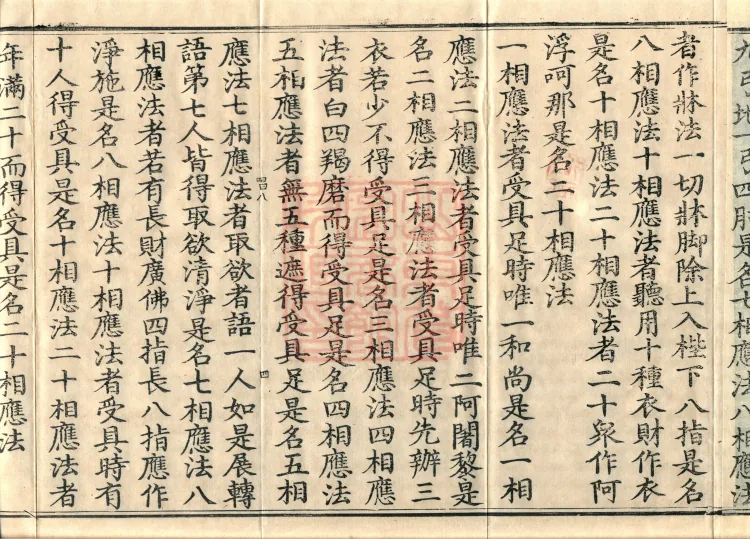 尺已地一引四肘是名十相應法八相應法
者作牀法一切牀脚除上入梐下八指是名
八相應法十相應法者聽用十種衣財作衣
是名十相應法二十相應法者二十衆作阿
浮呵那是名二十相應法
一相應法者受具足時唯一和尚是名一相
應法二相應法者受具足時唯二阿闍黎是
名二相應法三相應法者受具足時先辦三
衣若少不得受具足是名三相應法四相應
法者白四羯磨而得受具足是名四相應法
五相應法者無五種遮得受具足是名五相
習八
四
應法七相應法者取欲者語一人如是展轉
語第七人皆得取欲清淨是名七相應法八
相應法者若有長財廣佛四指長八指應作
淨施是名八相應法十相應法者受具時有
十人得受具是名十相應法二十相應法者
年滿二十而得受具是名二十相應法